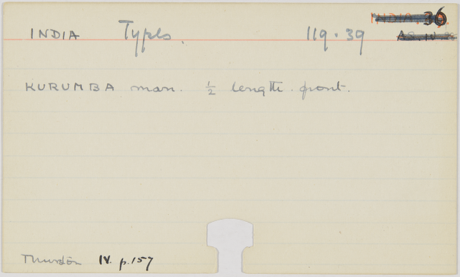 INDIA Types. 119.39 36
KURUMBA man. ½ length. front.
Thurston IV. p.157